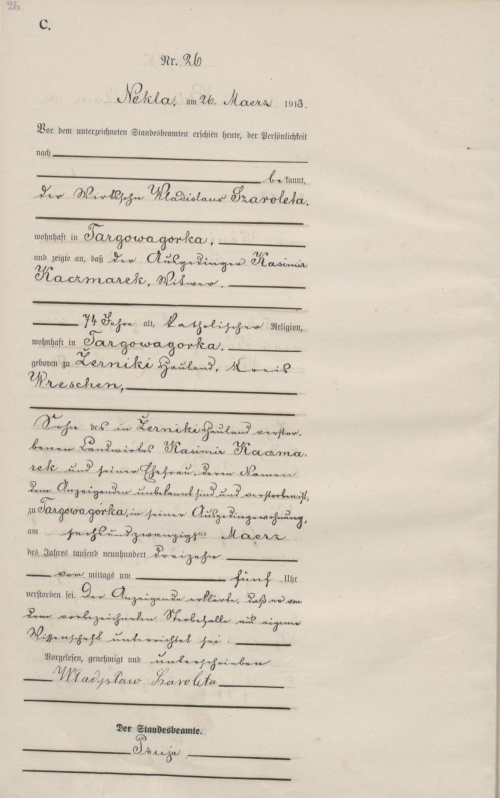 26.
C.
Nr. 26
Nekla, am 26. Maerz 1913.
Vor dem unterzeichneten Standesbeamten erschien heute, der Persönlichkeit
nach
bekannt,
der Wladislaus Szaroleta,
wohnhaft in Targowagorka,
und zeigte an, daß der Ausgedinger Kasimir
Kaczmarek, Witwer
74 Jahre alt, katholischer Religion,
wohnhaft in Targowagorka,
geboren zu Żerniki Hauland, Kreis
Wreschen,
Sohn des in Żerniki Hauland verstor-
benen Landwirtes Kasimir Kaczma-
rek und seiner Ehefrau, deren Namen
dem Anzeigenden unbekannt sind und verstorben ist,
zu Targowagórka, in seiner Ausgedingewohnung,
am sechsundzwanzigsten Maerz
des Jahres tausend neunhundert dreizehn
vor mittags um fünf Uhr
verstorben sei. Der Anzeigende erklärte, daß er von
dem vorbezeichneten Sterbefalle aus eigener
Wissenschaft unterrichtet sei.
Vorgelesen, genehmigt und unterschrieben
Władysław Szaroleta
Der Standesbeamte.